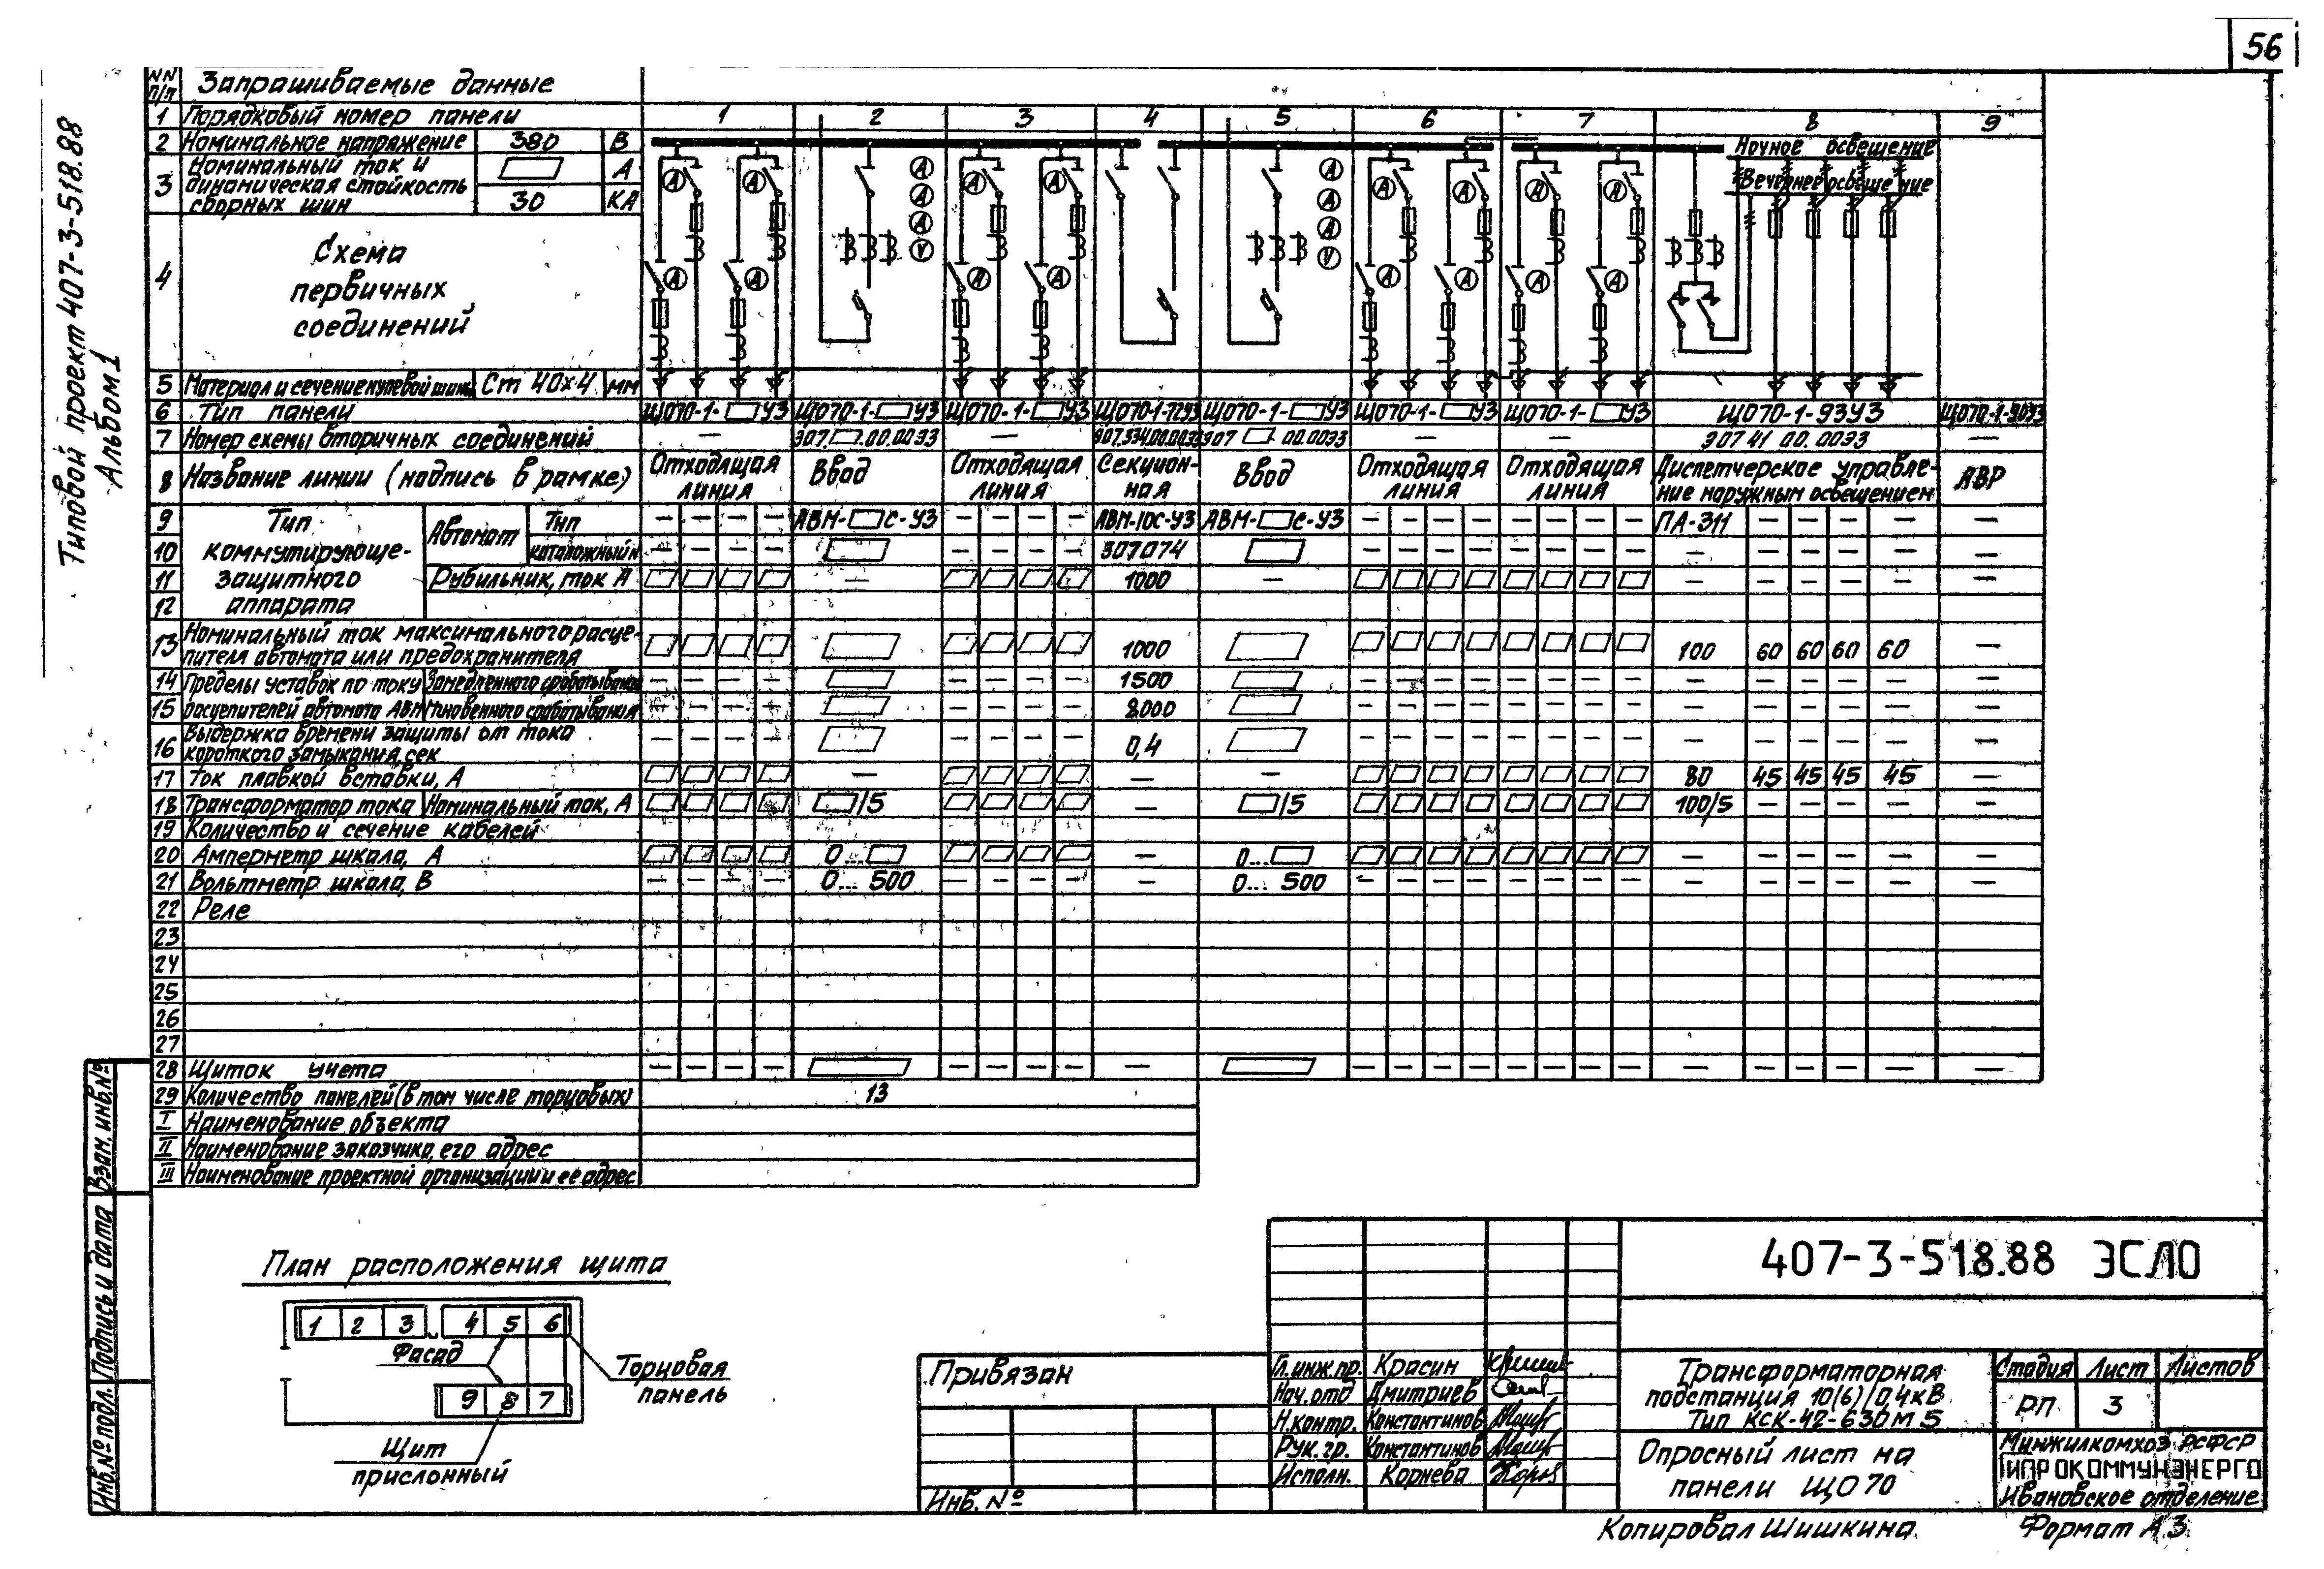 56
Типовой проект 407-3-518.88
Альбом 1
NN п/п Запрашиваемые данные
1 Порядковый номер панели 1 2 3 4 5 6 7 8 9
2 Номинальное напряжение 380 В
3 Номинальный ток и динамическая стойкость сборных шин А
30 КА
4 Схема первичных соединений
А А А А А А А V А А А А А А А V А А А А А А А А
Ночное освещение
Вечернее освещение
5 Материал и сечение нулевой шины Ст 40×4 мм
6 Тип панели ЩО70-1- У3 ЩО70-1- У3 ЩО70-1- У3 ЩО70-1-72У3 ЩО70-1- У3 ЩО70-1- У3 ЩО70-1- У3 ЩО70-1-93У3 ЩО70-1-90У3
7 Номер схемы вторичных соединений — Э07. .00.00ЭЗ — Э07 .00.00ЭЗ — — Э07 41 00.00ЭЗ —
8 Название линии (надпись в рамке) Отходящая линия Ввод Отходящая линия Секционная Ввод Отходящая линия Отходящая линия Диспетчерское управление наружным освещением АВР
9 Тип коммутирующе-защитного аппарата Автомат Тип — — — — АВМ- С-У3 — — — — АВМ-10С-У3 АВМ- С-У3 — — — — — — — — ПА-311 — — — — —
10 каталожный н — — — — — — — — 307074 — — — — — — — — — — — — — —
11 Рубильник, ток А — 1000 — — — — — — —
12
13 Номинальный ток максимального расцепителя автомата или предохранителя 1000 100 60 60 60 60 —
14 Пределы уставок по току Замедленного срабатывания — — — — — — — — 1500 — — — — — — — — — — — — — —
15 расцепителей автомата АВМ Мгновенного срабатывания — — — — — — — — 8000 — — — — — — — — — — — — — —
16 Выдержка времени защиты от тока короткого замыкания, сек — — — — — — — — 0,4 — — — — — — — — — — — — — —
17 Ток плавкой вставки, А — — — 80 45 45 45 45 —
18 Трансформатор тока Номинальный ток, А /5 — /5 100/5 — — — — —
19 Количество и сечение кабелей
20 Амперметр шкала, А 0... — 0... — — — — — —
21 Вольтметр шкала, В — — — — 0... 500 — — — — — 0... 500 — — — — — — — — — — — — — —
22 Реле
23
24
25
26
27
28 Щиток учета — — — — — — — — — — — — — — — — — — — — — — —
29 Количество панелей (в том числе торцовых) 13
I Наименование объекта
II Наименование заказчика, его адрес
III Наименование проектной организации и ее адрес
Взам. инв.№
Подпись и дата
Инв.№ подл.
План расположения щита
1 2 3 4 5 6
Фасад
9 8 7
Торцовая панель
Щит прислонный
Привязан
Инв. №
407-3-518.88 ЭСЛО
Гл.инж.пр. Красин
Нач.отд Дмитриев
Н.контр. Константинов
Рук. гр. Константинов
Исполн. Корнева
Трансформаторная подстанция 10(6)/0,4кВ Тип КСК-42-630М5
Стадия Лист Листов
РП 3
Опросный лист на панели ЩО70
Минжилкомхоз РСФСР
ГИПРОКОММУНЭНЕРГО
Ивановское отделение
Копировал Шишкина Формат А3